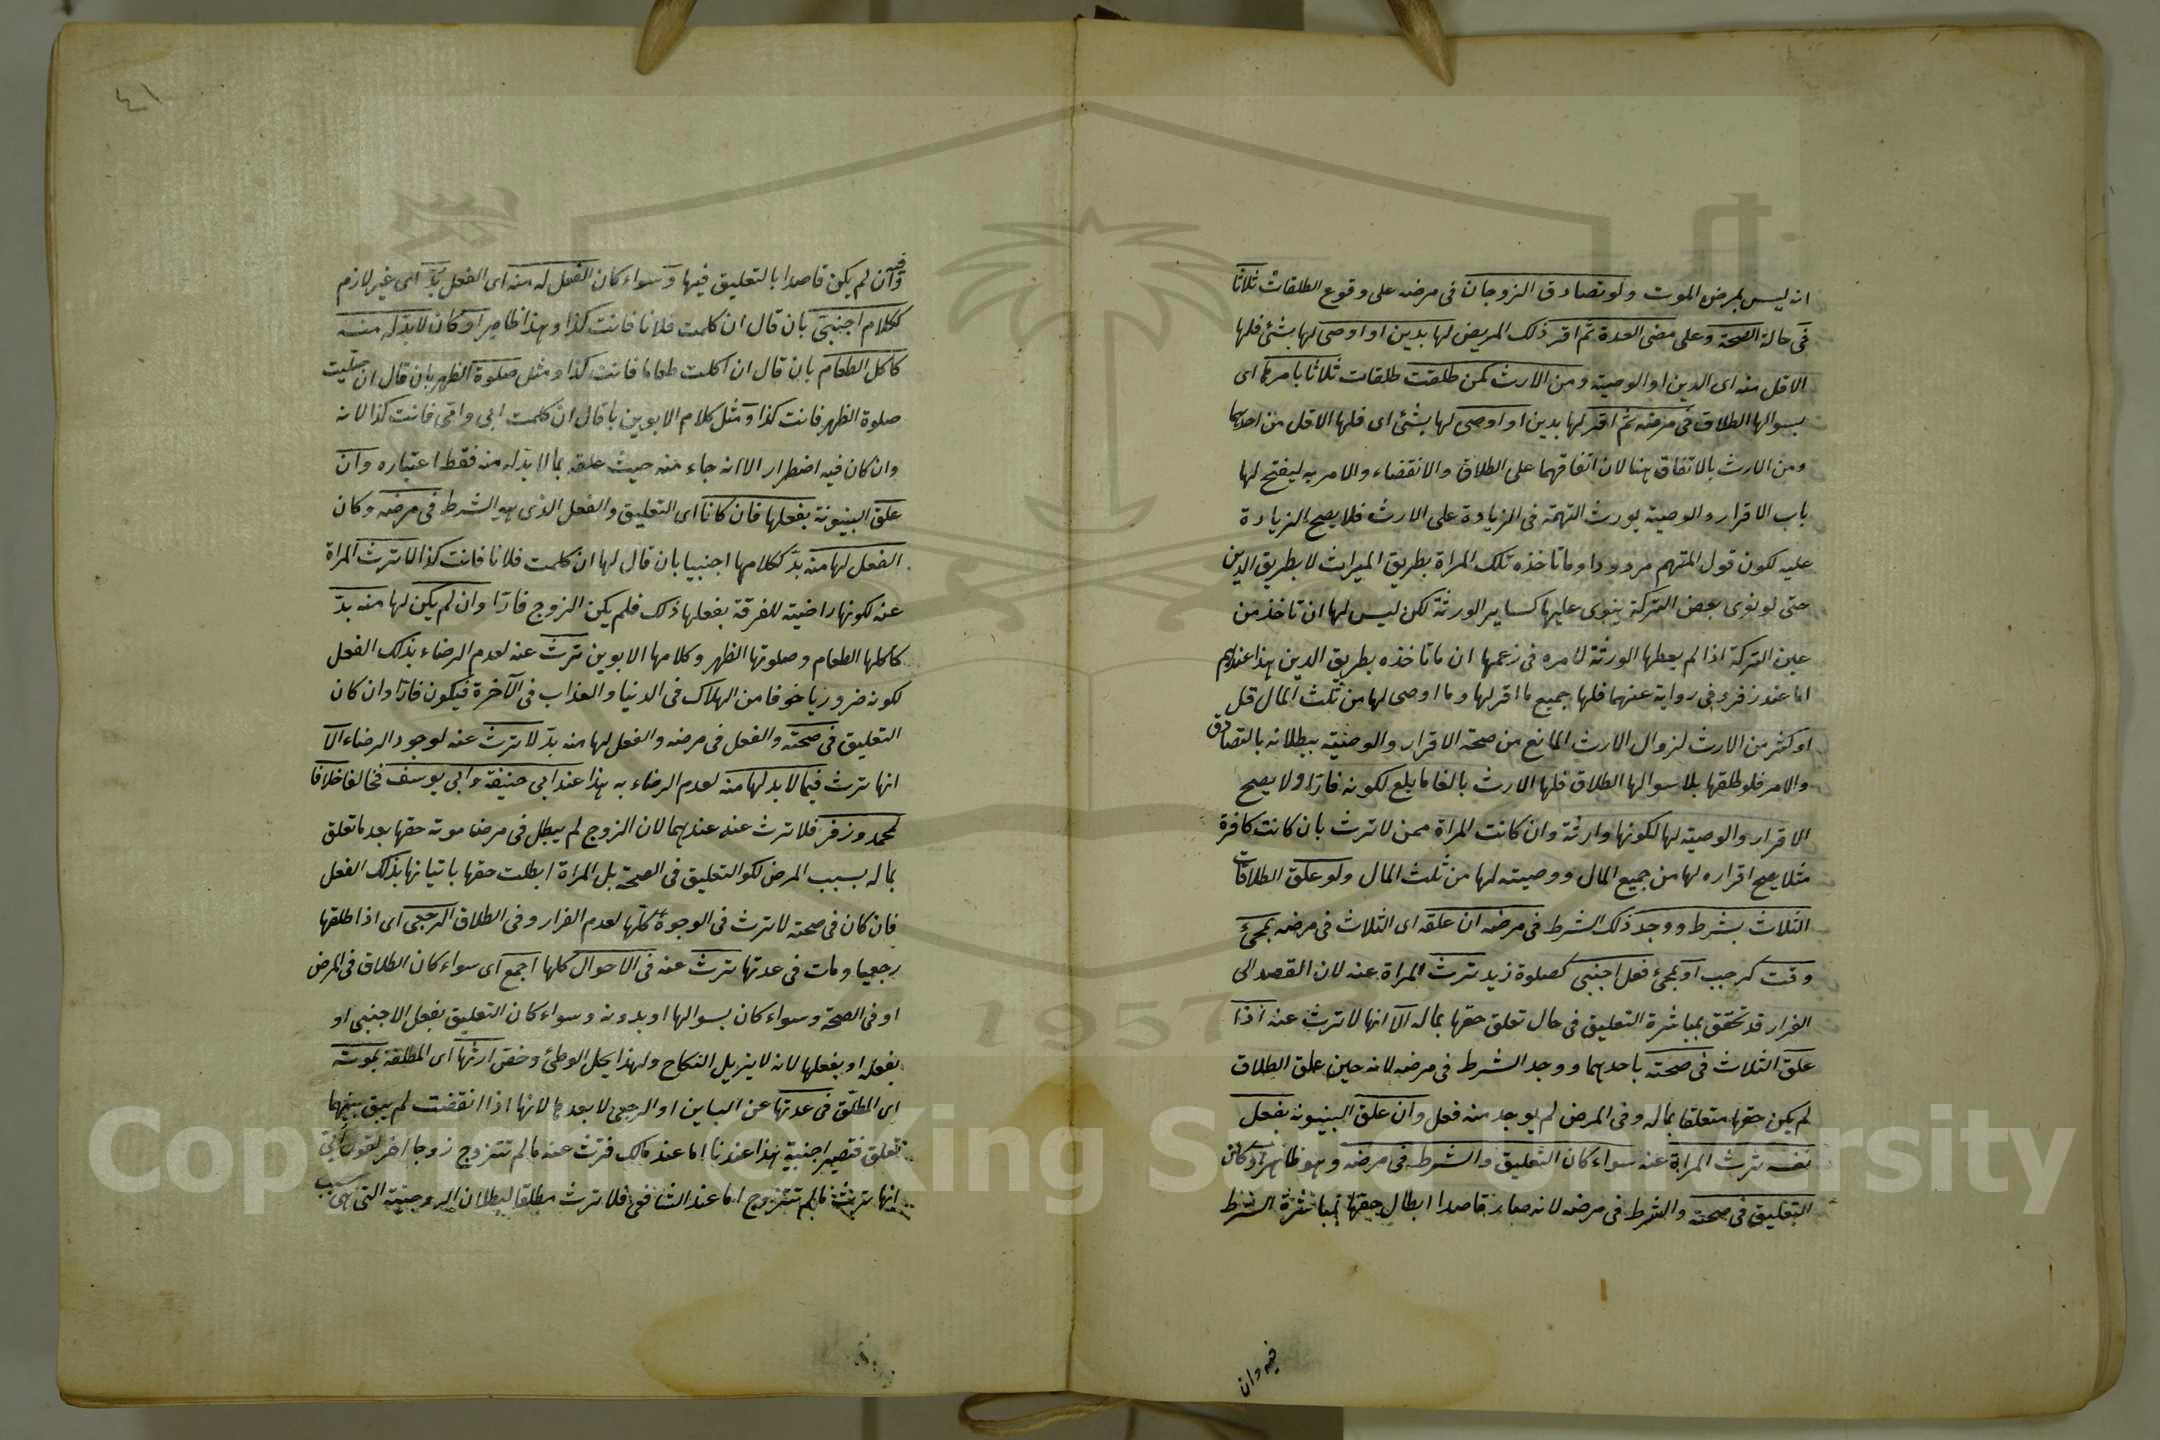 انه ليس بمرض الموت ولو تصادق الزوجان فى مرضه على وقوع الطلقات ثلاثا
فى حالة الصحة وعلى مضى العدة ثم اقر ذلك المريض لها بدين او اوصى لها بشئ فلها
الاقل منه اى الدين او الوصية ومن الارث كمن طلقت طلقات ثلاثا بامرها اى
بسوالها الطلاق فى مرضه ثم اقر لها بدين او اوصى لها بشئ اى فلها الاقل من احدهما
ومن الارث بالاتفاق هنا لان اتفاقهما على الطلاق والانقضاء والامر به ليفتح لها
باب الاقرار والوصية يورث التهمة فى الزيادة على الارث فلا يصح الزيادة
عليه لكون قول المتهم مردودا وما تاخذه تلك المراة بطريق الميراث لا بطريق الدين
حتى لو نوى بعض التركة ينوى عليها كساير الورثة لكن ليس لها ان تاخذ من
عين التركة اذا لم يعطها الورثة لامره فى زعمها ان ما تاخذه بطريق الدين هذا عندهم
اما عند زفر وفى رواية عنهما فلها جميع ما اقر لها وما اوصى لها من ثلث المال قل
او كثر من الارث لزوال الارث المانع من صحة الاقرار والوصية ببطلانه بالتصادق
والامر فلو طلقها بلا سوالها الطلاق فلها الارث بالغا ما بلغ لكونه فارا ولا يصح
الاقرار والوصية لها لكونها وارثة وان كانت المراة ممن لا ترث بان كانت كافرة
مثلا يصح اقراره لها من جميع المال ووصيته لها من ثلث المال ولو علق الطلاقات
الثلاث بشرط ووجد ذلك الشرط فى مرضه ان علقه اى الثلاث فى مرضه بمجئ
وقت كرجب او بمجئ فعل اجنبى كصلوة زيد ترث المراة عنه لان القصد الى
الفرار قد تحقق بمباشرة التعليق فى حال تعلق حقها بماله الا انها لا ترث عنه اذا
علق الثلاث فى صحته باحدهما ووجد الشرط فى مرضه لانه حين علق الطلاق
لم يكن حقها متعلقا بماله وفى المرض لم يوجد منه فعل وان علق البينونة بفعل
نفسه ترث المراة عنه سواء كان التعليق والشرط فى مرضه وهو ظاهر او كان
التعليق فى صحته والشرط فى مرضه لانه صار قاصدا ابطال حقها بمباشرة الشرط
فيه وان
٤١
فيه
وان لم يكن قاصدا بالتعليق فيها وسواء كان الفعل له منه اى الفعل بد اى غير لازم
ككلام اجنبى بان قال ان كلمت فلانا فانت كذا وهذا ظاهر او كان لا بد له منه
كاكل الطعام بان قال ان اكلت طعاما فانت كذا ومثل صلوة الظهر بان قال ان صليت
صلوة الظهر فانت كذا ومثل كلام الابوين باقال ان كلمت ابى وامى فانت كذا لانه
وان كان فيه اضطرار الا انه جاء منه حيث علقه بما لا بد له منه فقط اعتباره وان
علق البينونة بفعلها فان كانا اى التعليق والفعل الذى هو الشرط فى مرضه وكان
الفعل لها منه بد ككلامها اجنبيا بان قال لها ان كلمت فلانا فانت كذا لا ترث المراة
عنه لكونها راضية للفرقة بفعلها ذلك فلم يكن الزوج فارا وان لم يكن لها منه بد
كاكلها الطعام وصلوتها الظهر وكلامها الابوين ترث عنه لعدم الرضاء بذلك الفعل
لكونه ضروريا خوفا من الهلاك فى الدنيا والعذاب فى الآخرة فيكون فارا وان كان
التعليق فى صحته والفعل فى مرضه والفعل لها منه بد لا ترث عنه لوجود الرضاء الا
انها ترث فيما لا بد لها منه لعدم الرضاء به هذا عند ابى حنيفة وابى يوسف مخالفا خلافا
لمحمد وزفر فلا ترث عنه عندهما لان الزوج لم يبطل فى مرض موته حقها بعد ما تعلق
بماله بسبب المرض لكو التعليق فى الصحة بل المراة ابطلت حقها باتيانها بذلك الفعل
فان كان فى صحته لا ترث فى الوجوه كلها لعدم الفرار وفى الطلاق الرجعى اى اذا طلقها
رجعيا ومات فى عدتها ترث عنه فى الاحوال كلها اجمع اى سواء كان الطلاق فى المرض
او فى الصحة وسواء كان بسوالها او بدونه وسواء كان التعليق بفعل الاجنبى او
بفعله او بفعلها لانه لا يزيل النكاح ولهذا يحل الوطئ وخص ارثها اى المطلقة بموته
اى المطلق فى عدتها عن الباين او الرجعى لا بعدها لانها اذا انقضت لم يبق بينهما
تعلق فتصير اجنبية هذا عندنا اما عند مالك فترث عنه ما لم تتزوج زوجا اخر لقول ابى
انها ترث ما لم تتزوج اما عند الشافعى فلا ترث مطلقا لبطلان الزوجية التى هى سبب